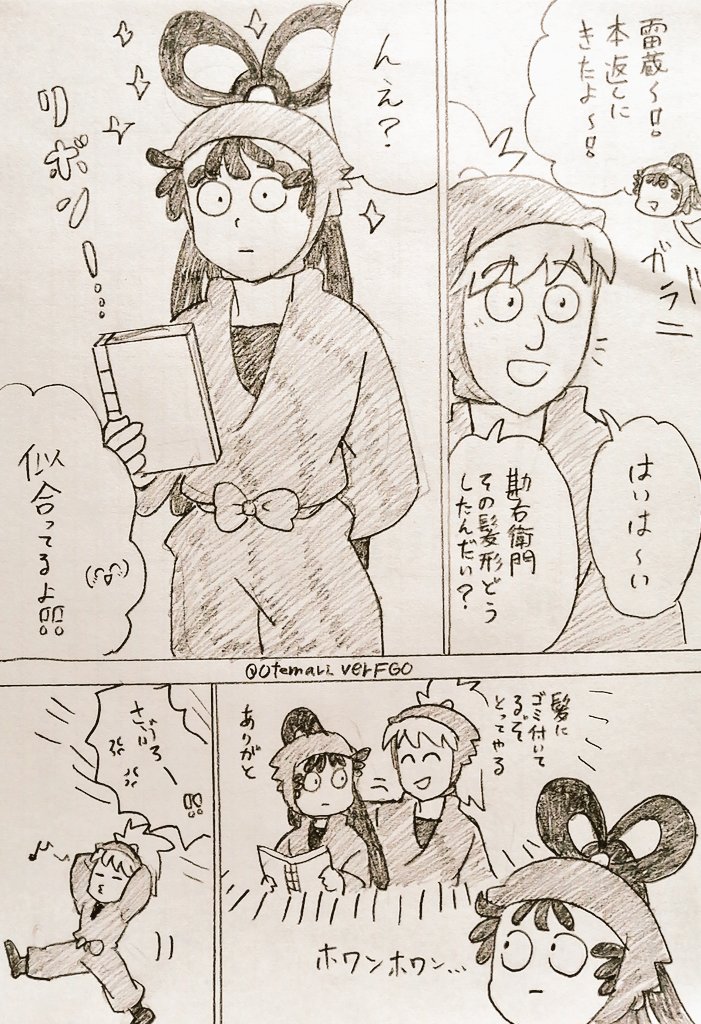 雷蔵〜!!
本返しに
きたよ〜!!
ガラ
はいは〜い
勘右衛門
その髪形どう
したんだい？
んえ？
リボン！…
似合ってるよ!!!
@Otemari verFGO
髪に
ゴミ付いて
るぞ
とってやる
ありがと
ホワンホワン…
さぶろー!!